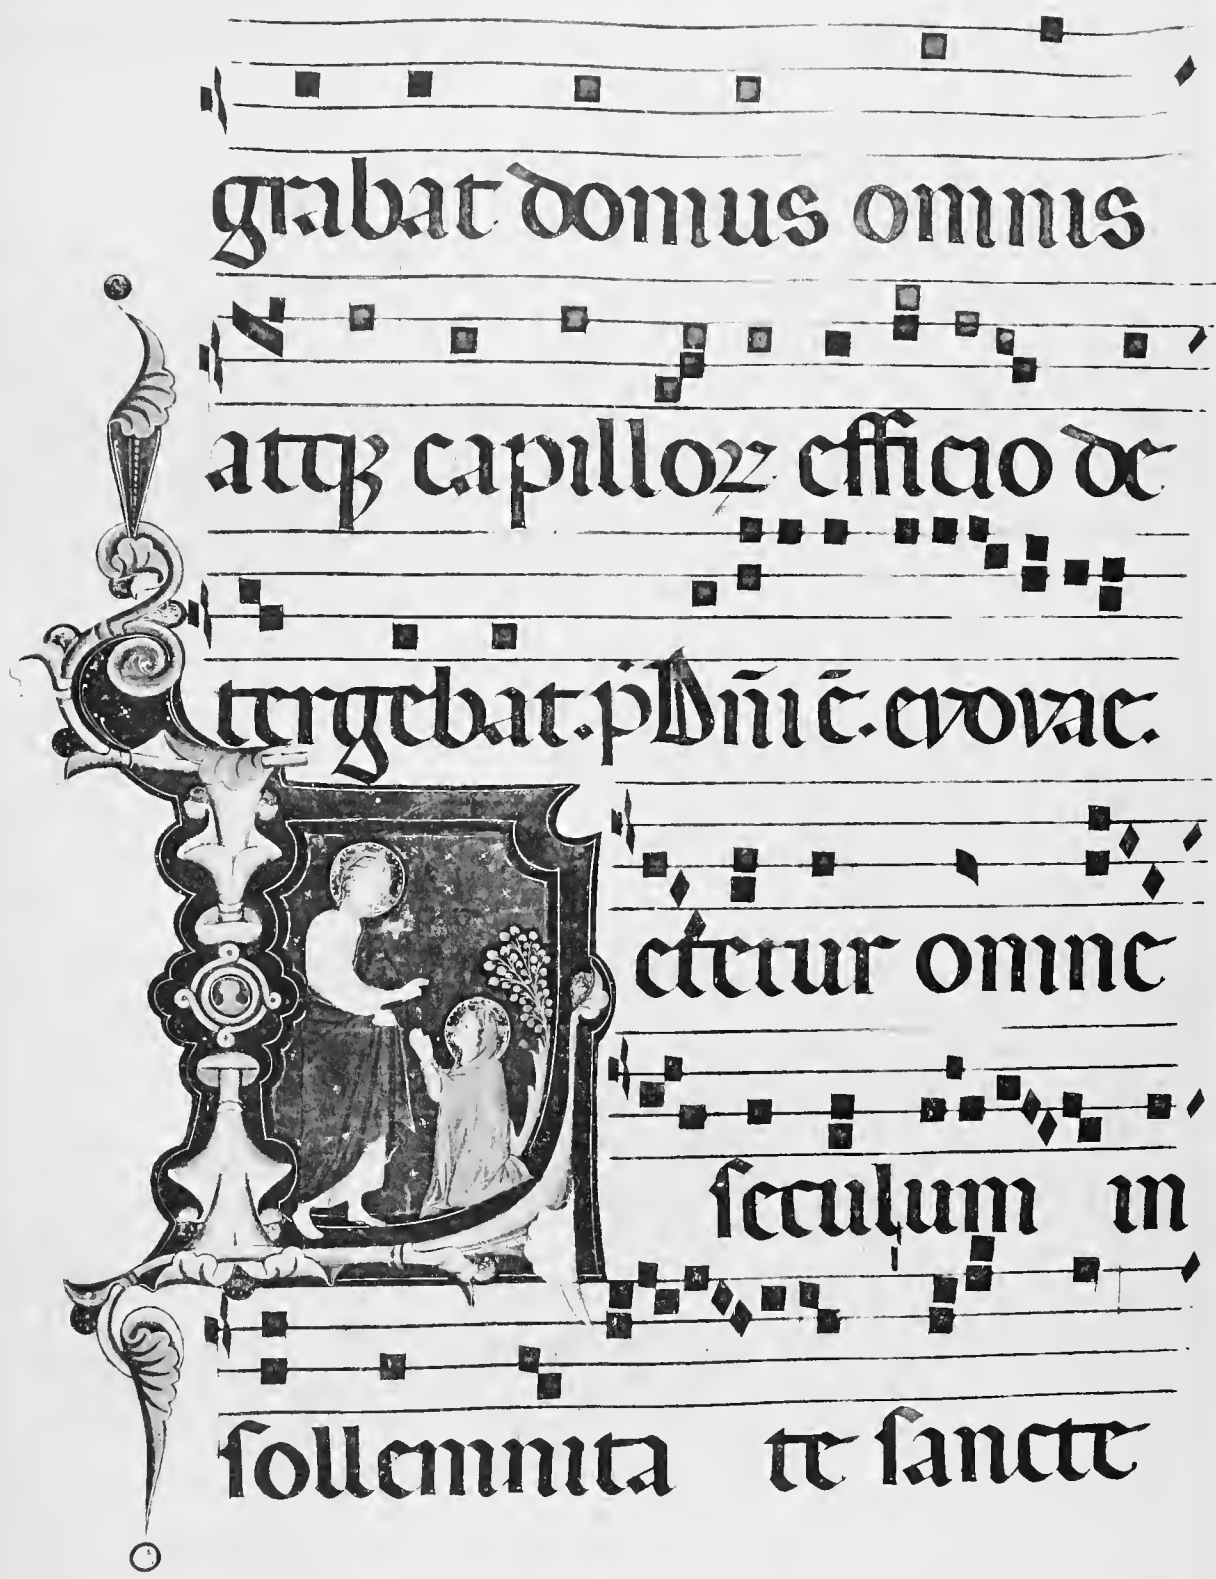 grabat domus omnis
atqꝫ capilloꝝ efficio de
tergebat. p̄ Dñic̄. evovae.
Letetur omne
ſeculum in
ſollemnita te ſancte